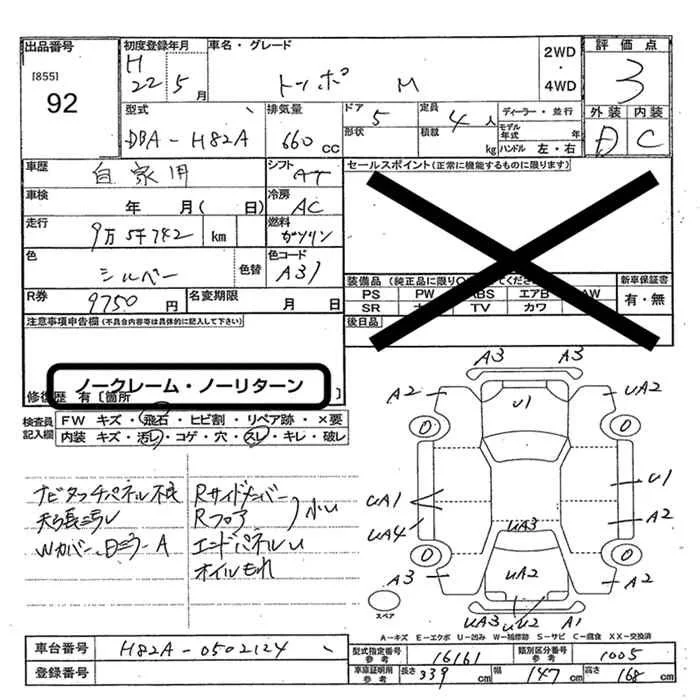 出品番号
[855]
92
初度登録年月
H
22 5月
車名・グレード
トッポ M
2WD
・
4WD
評価点
3
外装 内装
D C
型式
DBA-H82A
排気量
660 CC
ドア 5
形状
定員 4人
積載 kg
ディーラー・並行
モデル年式 年
ハンドル 左・右
車歴
自家用
シフト
AT
セールスポイント(正常に機能するものに限ります)
車検
年 月( 日)
冷房
AC
走行
9万5千742 km
燃料
ガソリン
色
シルバー
色替
色コード
A31
R券
9750 円
名変期限
月 日
装備品(純正品に限り
PS PW ABS エアB AW
SR TV カワ
後日品
新車保証書
有・無
注意事項申告欄(不具合内容等は具体的に記入して下さい)
ノークレーム・ノーリターン
修復歴 有[箇所 ]
検査員
記入欄
FW キズ・飛石・ヒビ割・リペア跡・×要
内装 キズ・汚レ・コゲ・穴・スレ・キレ・破レ
ナビタッチパネル不良
天張ミラレ
Wカバー、日ミラーA
Rサイドメンバー
Rフロア
小U
エンドパネルU
オイルもれ
A3 A3
A2 U1 UA2
UA1 U1
UA4 UA3 A2
A3 UA2 A2
UA3 UU2 A1
スペア
A-キズ E-エクボ U-凹み W-補修跡 S-サビ C-腐食 XX-交換済
車台番号
H82A-0502124
登録番号
型式指定番号
参考
16161
類別区分番号
参考
1005
車庫証明用
参考
長さ 339 cm 幅 147 cm 高さ 168 cm